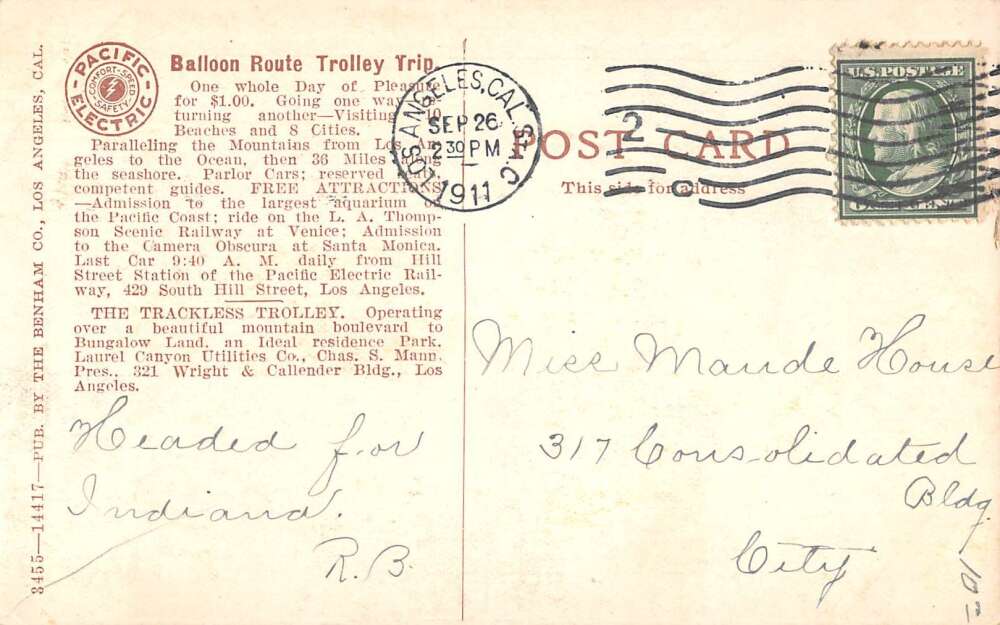 3455—14417—PUB. BY THE BENHAM CO., LOS ANGELES, CAL.
PACIFIC ELECTRIC
COMFORT-SPEED
SAFETY
Balloon Route Trolley Trip.
One whole Day of Pleasure
for $1.00. Going one way
turning another—Visiting 10
Beaches and 8 Cities.
Paralleling the Mountains from Los An-
geles to the Ocean, then 36 Miles along
the seashore. Parlor Cars; reserved
competent guides. FREE ATTRACTIONS
—Admission to the largest aquarium on
the Pacific Coast; ride on the L. A. Thomp-
son Scenic Railway at Venice; Admission
to the Camera Obscura at Santa Monica.
Last Car 9:40 A. M. daily from Hill
Street Station of the Pacific Electric Rail-
way, 429 South Hill Street, Los Angeles.
THE TRACKLESS TROLLEY. Operating
over a beautiful mountain boulevard to
Bungalow Land, an Ideal residence Park.
Laurel Canyon Utilities Co., Chas. S. Mann,
Pres., 321 Wright & Callender Bldg., Los
Angeles.
Headed for
Indiana.
R.B.
LOS ANGELES, CAL. S.
SEP 26
2 30 PM
1911
2
C
POST CARD
This side for address
U.S. POSTAGE
ONE CENT
Miss Maude House
317 Consolidated
Bldg.
City